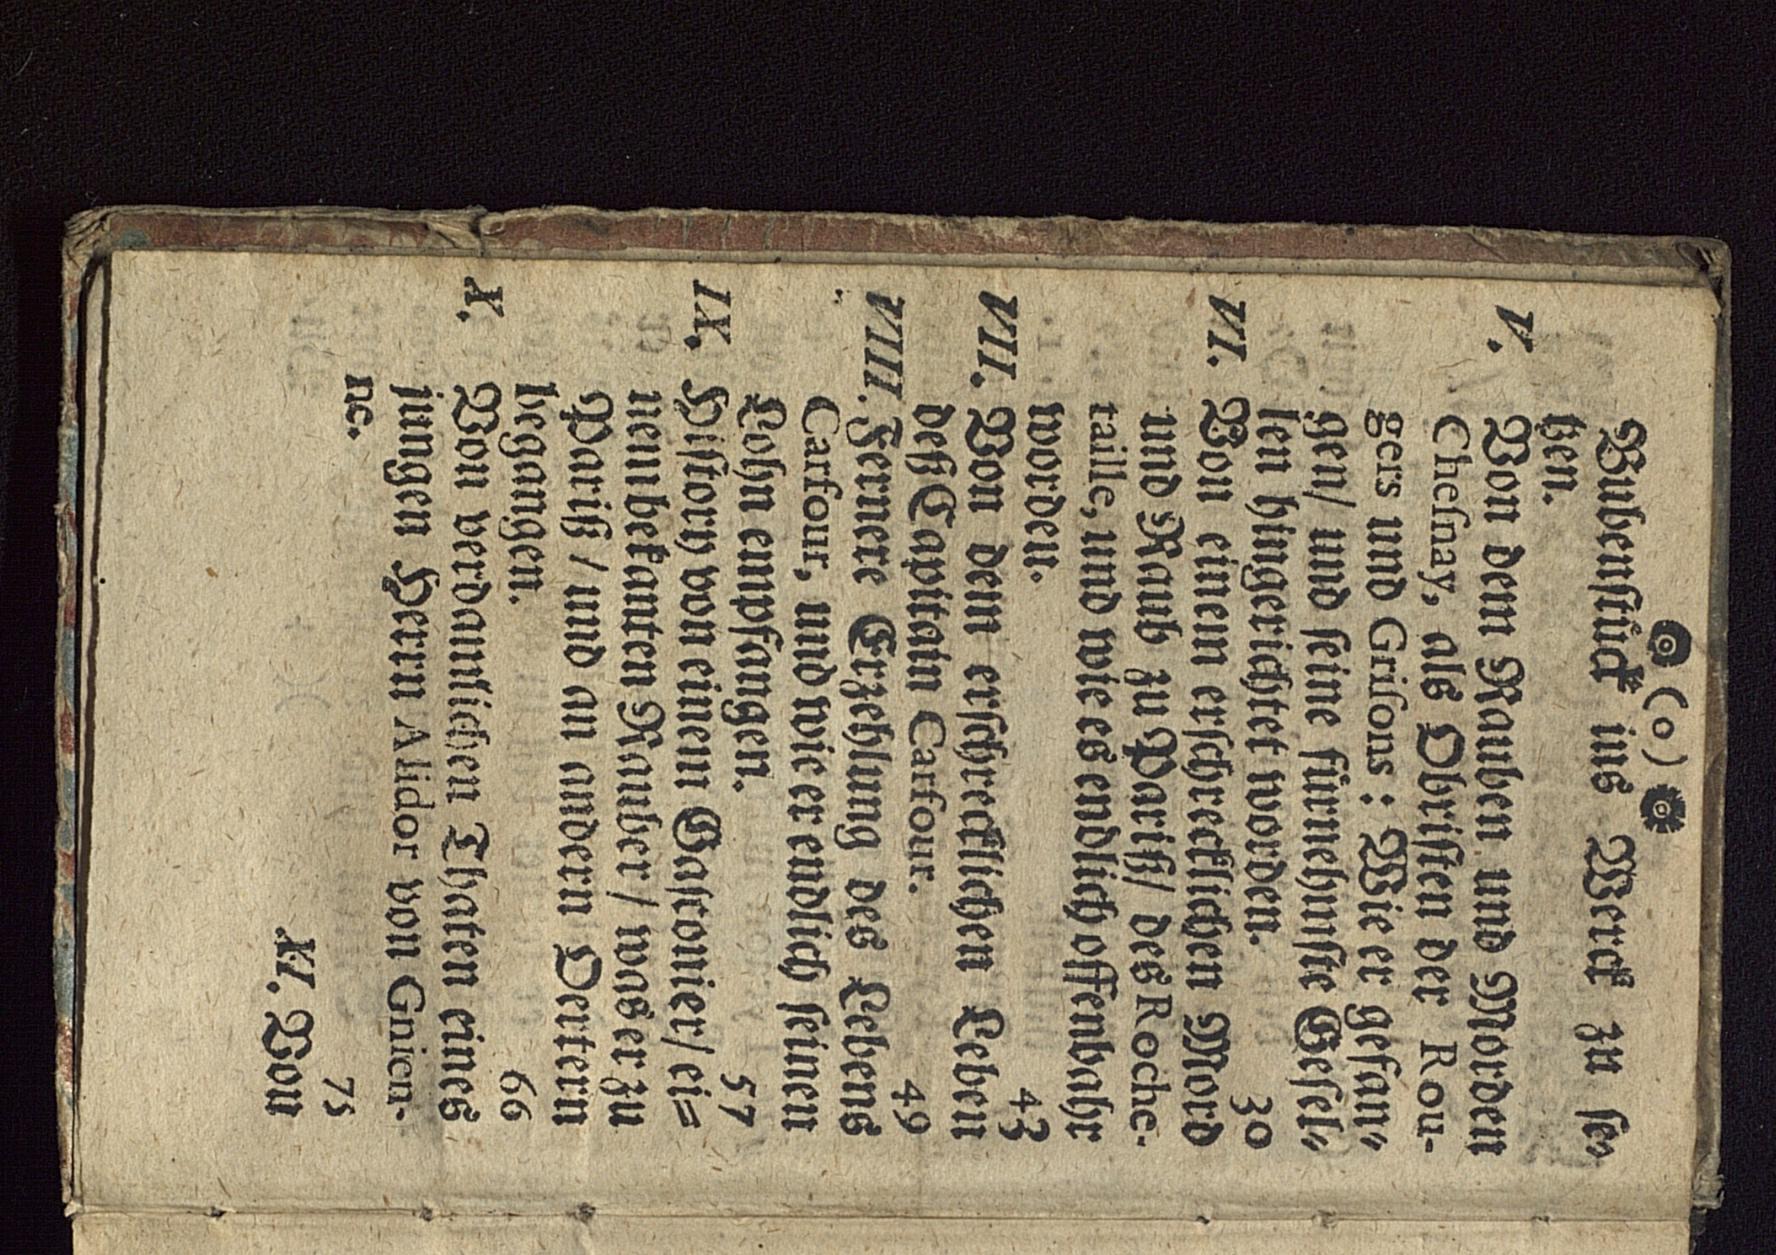 (o)
Bubenstück ins Werck zu se-
tzen.
V. Von dem Rauben und Morden
Chesnay, als Obristen der Rou-
gers und Grisons : Wie er gefan-
gen/ und seine fürnehmste Gesel-
len hingerichtet worden. 30
VI. Von einem erschrecklichen Mord
und Raub zu Pariß/ des Roche-
taille, und wie es endlich offenbahr
worden. 43
VII. Von dem erschrecklichen Leben
deß Capitain Carfour. 49
VIII. Fernere Erzehlung des Lebens
Carfour, und wie er endlich seinen
Lohn empfangen. 57
IX. History von einem Gasconier/ ei=
nem bekanten Rauber/ was er zu
Pariß / und an andern Oertern
begangen. 66
X. Von verdamlichen Thaten eines
jungen Herrn Alidor von Gnien-
ne. 75
XI. Von